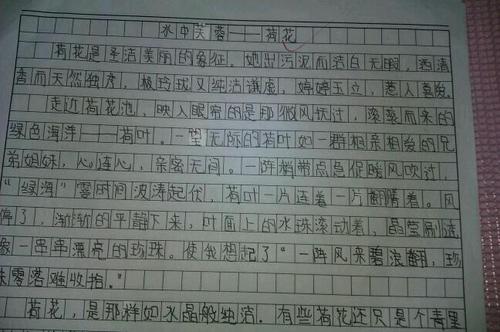 水中芙蓉——荷花
荷花是圣洁美丽的象征。她出污泥而洁白无暇，洒清
香而天然独处，极玲珑又纯洁谦虚，婷婷玉立，惹人喜爱。
走近荷花池，映入眼帘的是那微风吹过，滚滚而来的
绿色海洋——荷叶。一望无际的荷叶如一群相亲相爱的兄
弟姐妹，心连心，亲密无间。一阵稍带点急促暖风吹过，
“绿海”霎时间波涛起伏，荷叶一片连着一片翻腾着。风
停了，渐渐的平静下来，叶面上的水珠滚动着，晶莹剔透
象一串串漂亮的珍珠。使我想起了“一阵风来碧浪翻，珍
珠零落难收拾。”
荷花，是那样如水晶般纯洁。有些荷花还只是个青里